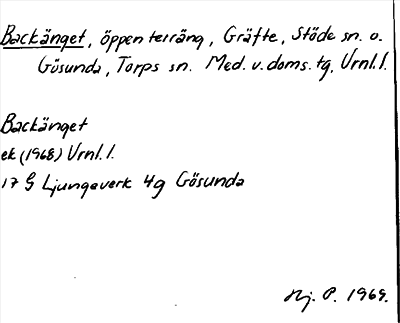 Backänget, öppen terräng, Gräfte, Stöde sn. o.
Gösunda, Torps sn. Med. v. doms. tg, Vrnl. l.
Backänget
ek (1968) Vrnl. l.
17 G Ljungaverk 4g Gösunda
Hj. P. 1969.